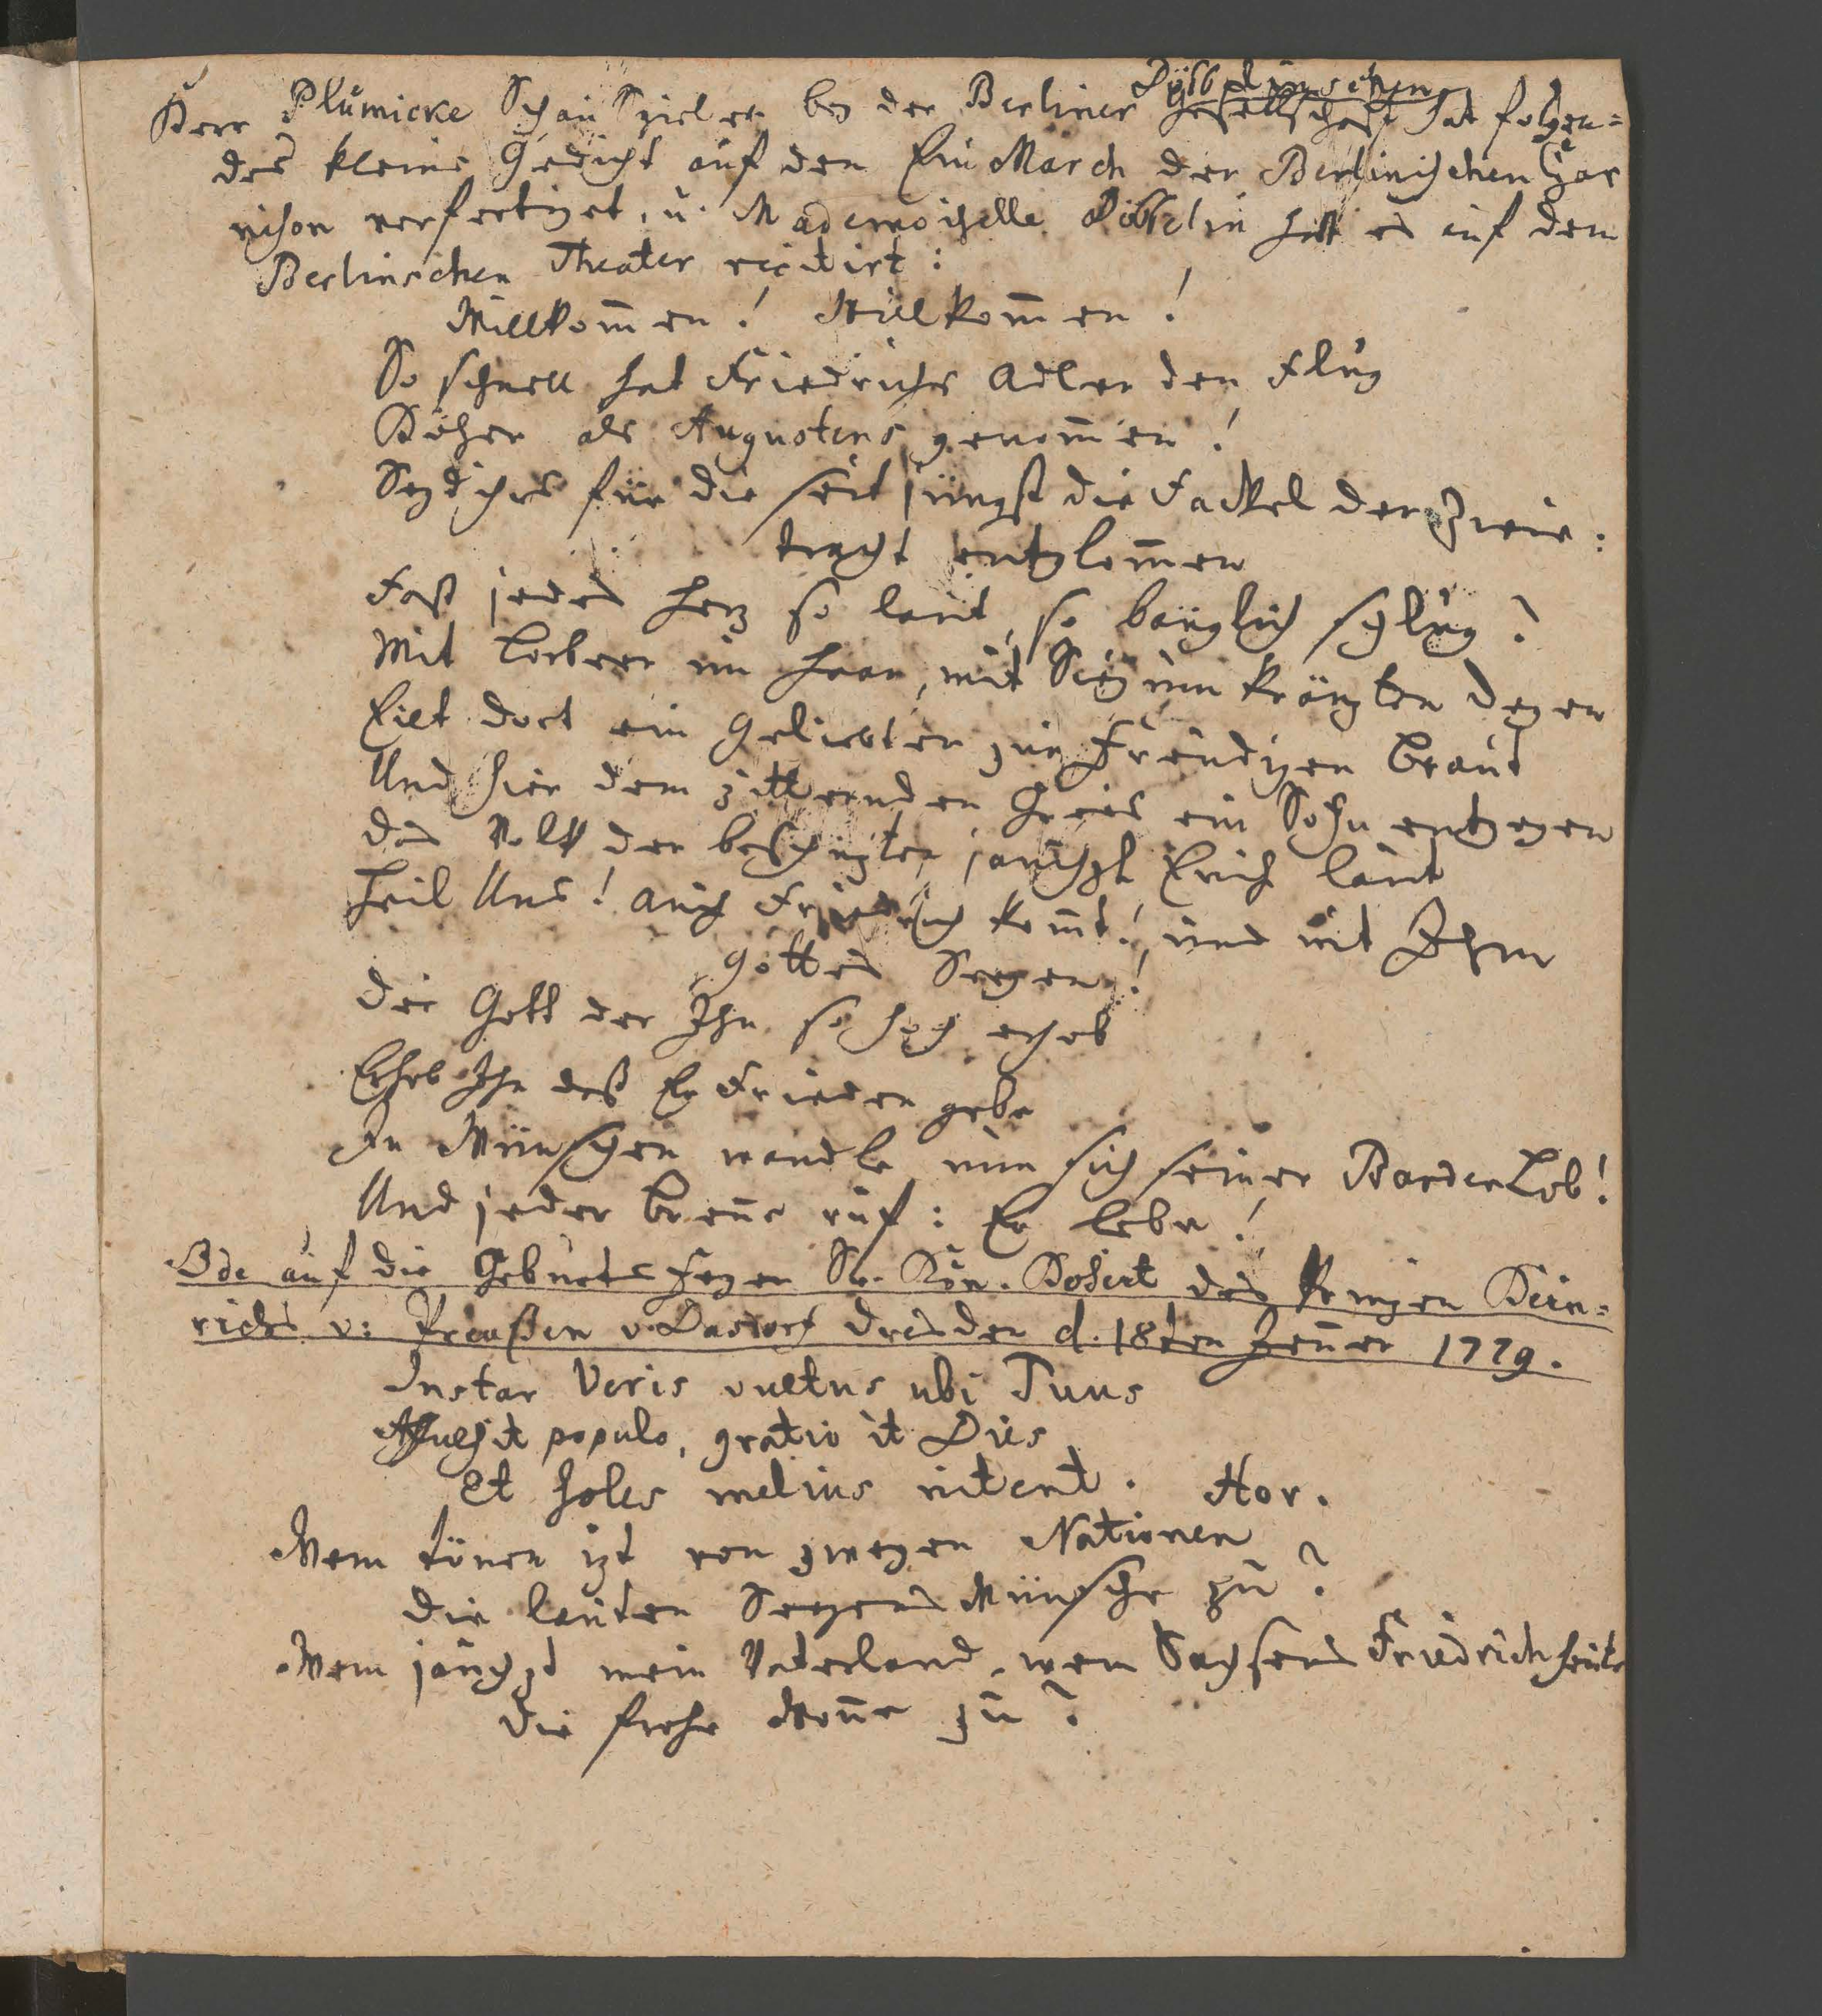 Döbbelinschen
Herr Plümicke Schau Spieler bey der Berliner Gesellschaft hat folgen=
des kleine Gedicht auf den Ein March der Berlinischen Gar
nison verfertiget, u. Mademoiselle Döbbelin hatt es auf dem
Berlinschen Theater recitirt:
Willkom̅en! Willkom̅en!
So schnell hat Friedrichs Adler den Flug
Höher als Augustens genom̅en!
Seyd ihrs für die seit jüngst die Fackel der Zwie:
tracht entglom̅en
Fast jedes Herz so laut, so bänglich schlug?
Mit Lorbeer im Haar, mit Sieg um kränzten Degen
Eilt dort ein Geliebter zur Freudigen Braut
Und hier dem zitternden Greis ein Sohn entgegen
Das Volk der beschüzten jauchzt Euch laut
Heil Uns! auch Friedrich kom̅t! und mit Ihm
Gottes Seegen!
Der Gott der Ihn so hoch erhob
Erhob Ihn daß Er Frieden gebe
In Wünschen wandle nun sich seiner Barden Lob!
Und jeder Breñe ruf: Er lebe!
Ode auf die Geburts Feyer Sr. Kön. Hoheit des Prinzen Hein=
richs v: Preußen v. Dasdorf Dresden d. 18ten Jeñer 1779.
Instar Veris vultus ubi Tuus
Affulsit populo, gratio it Dies
Et soles melius nitent. Hor.
Wem tönen izt von zweyen Nationen
Die lauten Seegens Wünsche zu?
Wem jauchzt mein Vaterland, wem Sachsens Friedrich heute
Die frohe Woñe zu?